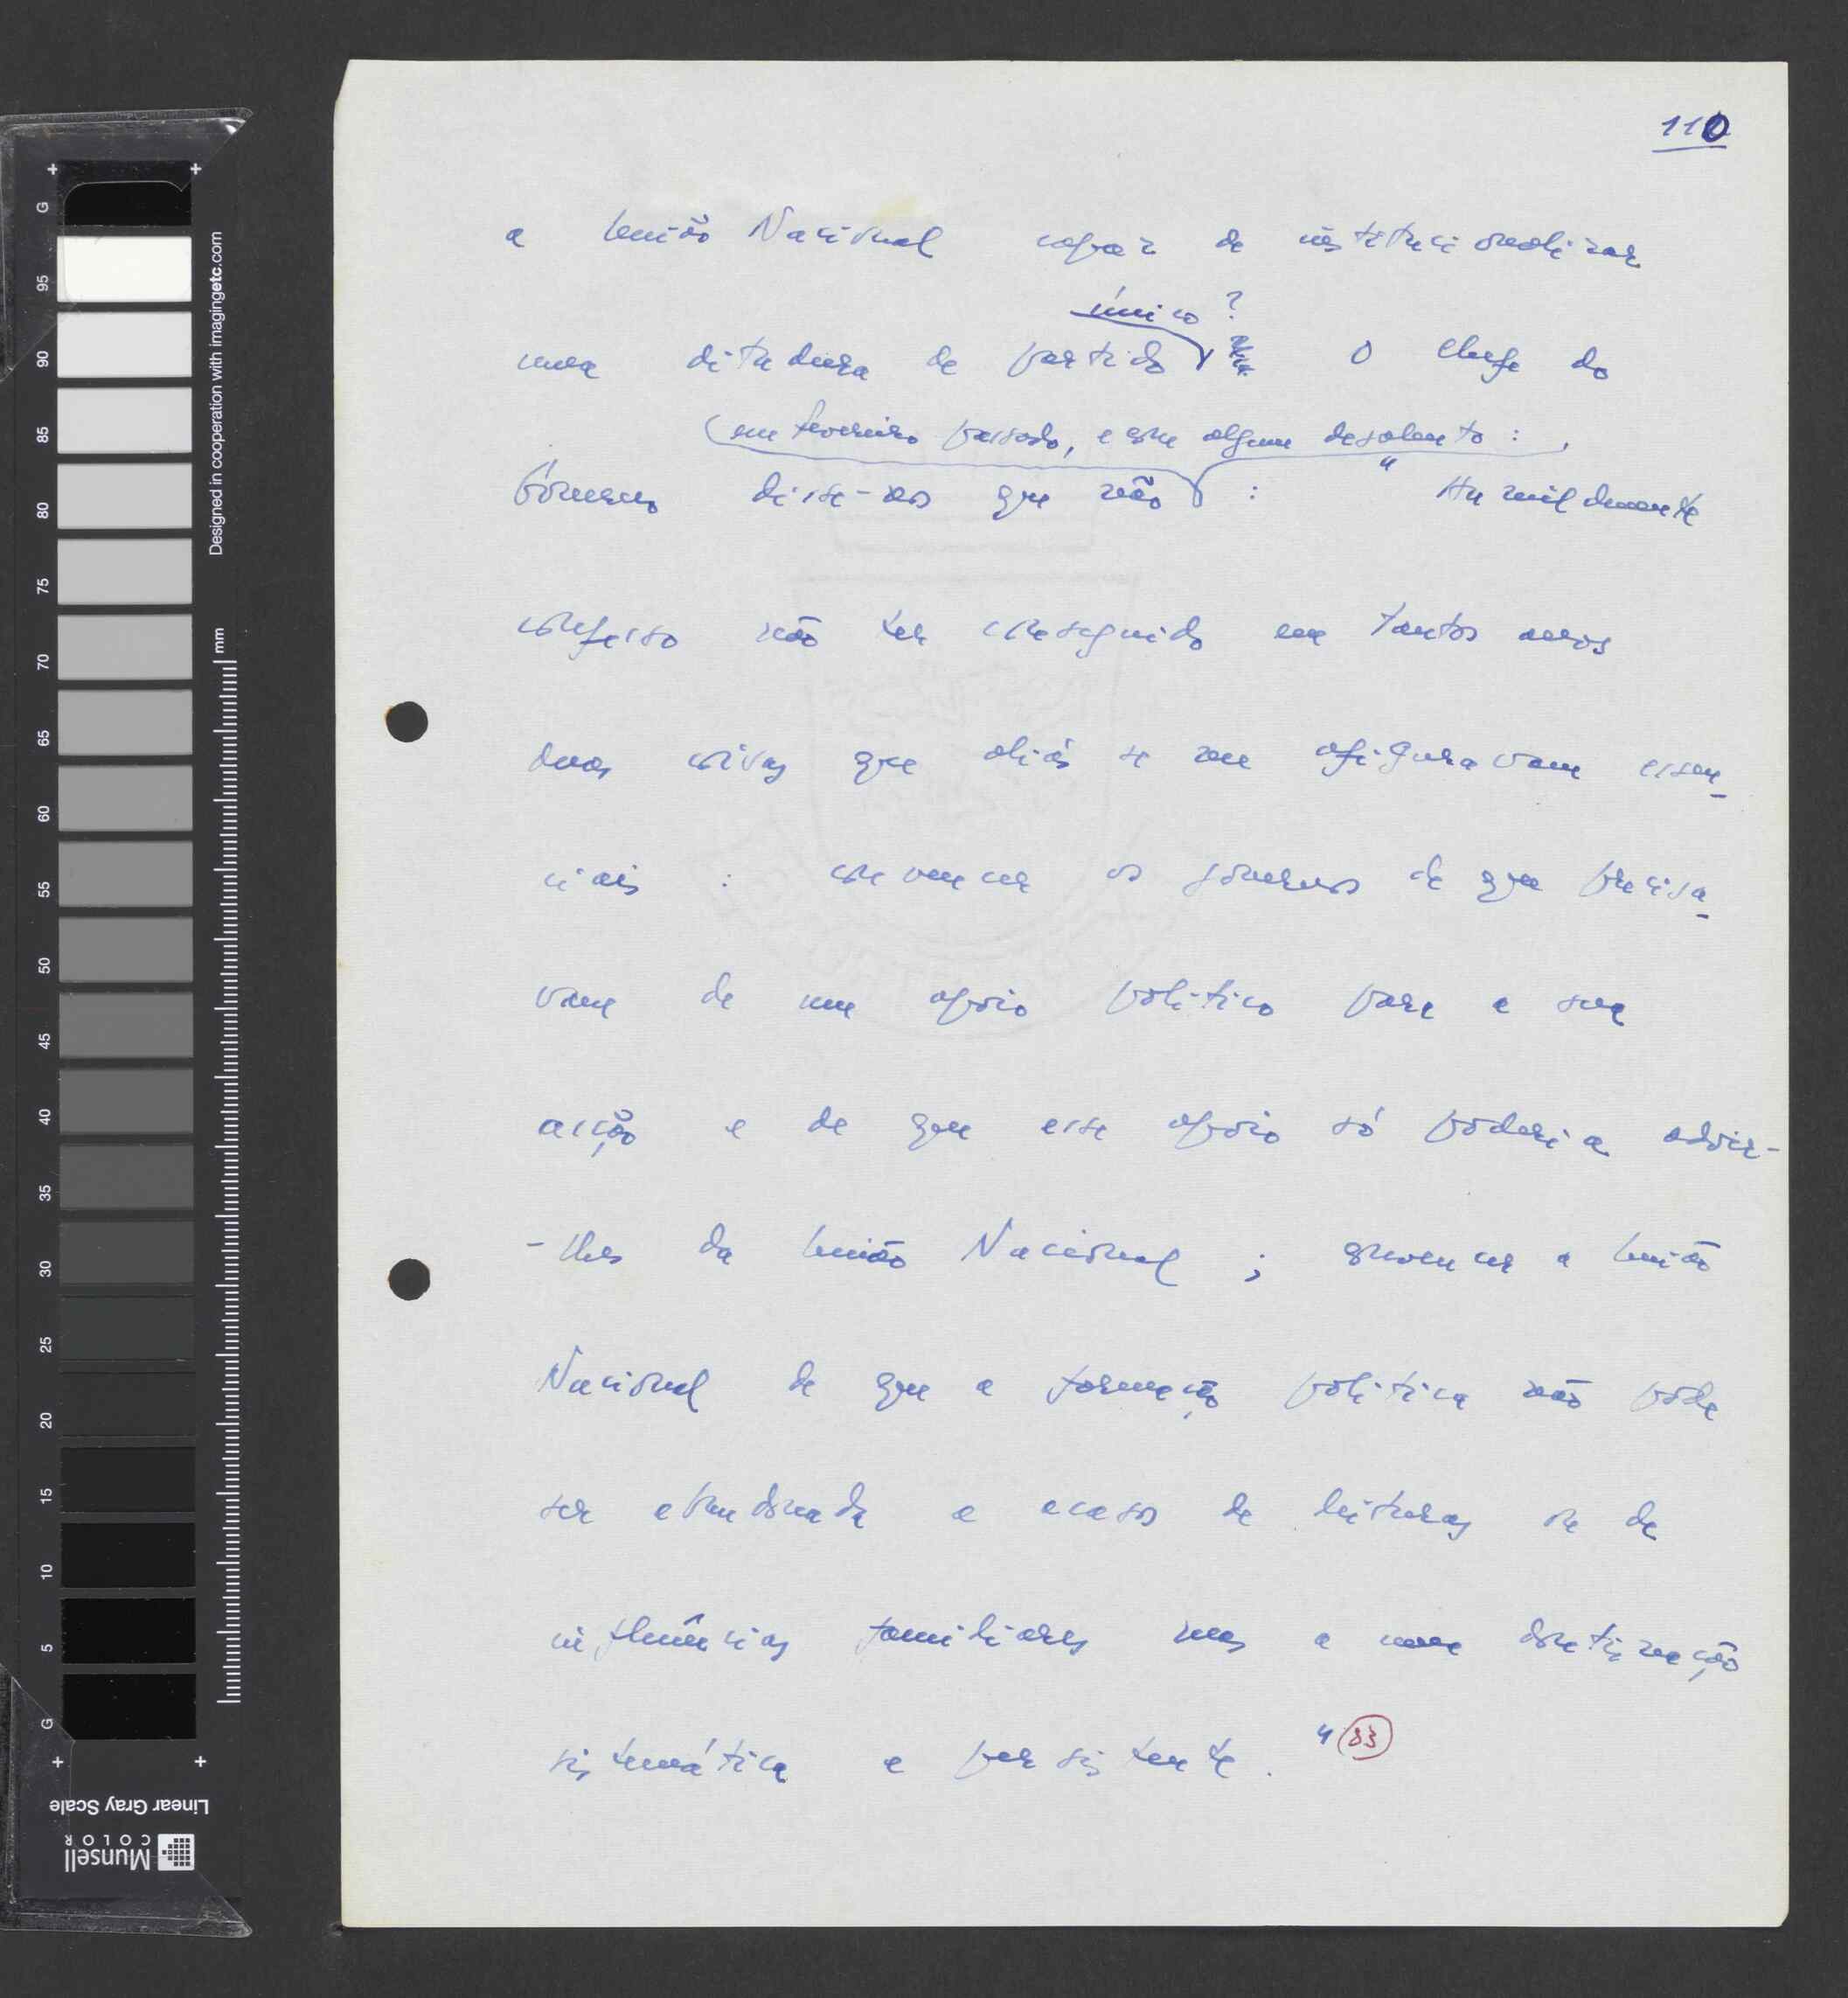 110
a União Nacional capaz de institucionalizar
único ?
uma ditadura de partido O Chefe do
em fevereiro passado, e com algum desalento :
Governo disse-nos que não : " Humildemente
confesso não ter conseguido em tantos anos
duas coisas que aliás se me afiguravam essen-
ciais : convencer os governos de que precisa-
vam de um apoio político para a sua
acção e de que esse apoio só poderia advir-
-lhes da União Nacional ; convencer a União
Nacional de que a formação política não pode
ser abandonada a acasos de leituras ou de
influências familiares mas a uma doutrinação
sistemática e persistente . " 83
G 95 90 85 80 75 70 65 60 55 50 45 40 35 30 25 20 15 10 5 G
Designed in cooperation with imagingetc.com
mm
Linear Gray Scale
Munsell
COLOR